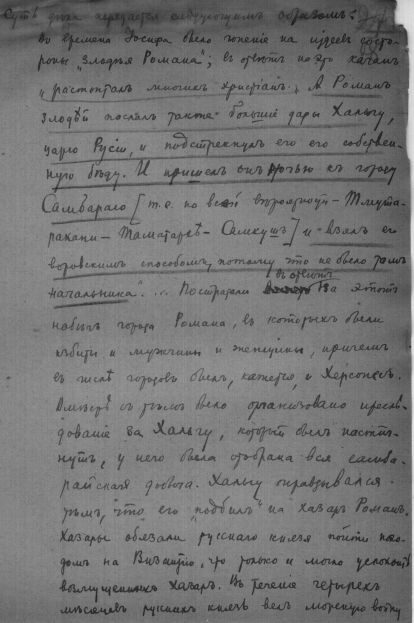 Суть дѣла передается слѣдующимъ образомъ:
во времена Іосифа было гоненіе на іудеевъ со сто-
роны "злодѣя Романа"; въ отвѣтъ на это каганъ
"растопталъ многихъ христіанъ". А Романъ
злодѣй послалъ также большіе дары Хальгу,
царю Русіи, и подстрекнулъ его его собствен-
ную бѣду. И пришелъ онъ ночью къ городу
Самбараю [т.е. по всей вѣроятности – Тмута-
ракани – Таматархѣ – Самкушъ] и взялъ его
воровскимъ способомъ, потому что не было тамъ
начальника". ... Пострадали въ отвѣтъ за этотъ
города Романа, въ которыхъ были
избиты и мужчины и женщины, причемъ
въ числѣ городовъ былъ, кажется, и Херсонесъ.
Вмѣстѣ съ тѣмъ было организовано преслѣ-
дованіе за Хальгу, который былъ настиг-
нутъ, у него была отобрана вся самба-
райская добыча. Хальгу оправдывался
тѣмъ, что его "подбилъ" на хазаръ Романъ.
Хазары обязали русскаго князя пойти похо-
домъ на Византію, что только и могло успокоить
возмущенныхъ хазаръ. Въ теченіе четырехъ
мѣсяцевъ русскихъ князь велъ морскую войну